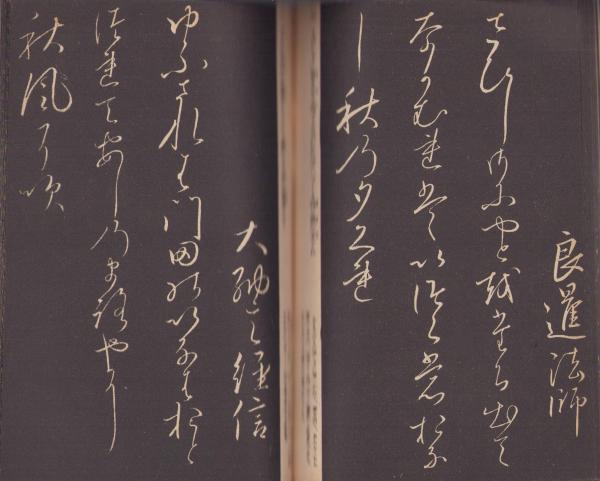 良暹法師
さひしさにやとをたち出て
なかむれはいつくもおな
し秋乃夕くれ
大納言経信
ゆふされは門田のいなはおと
つれてあしのまろやに
秋風そ吹